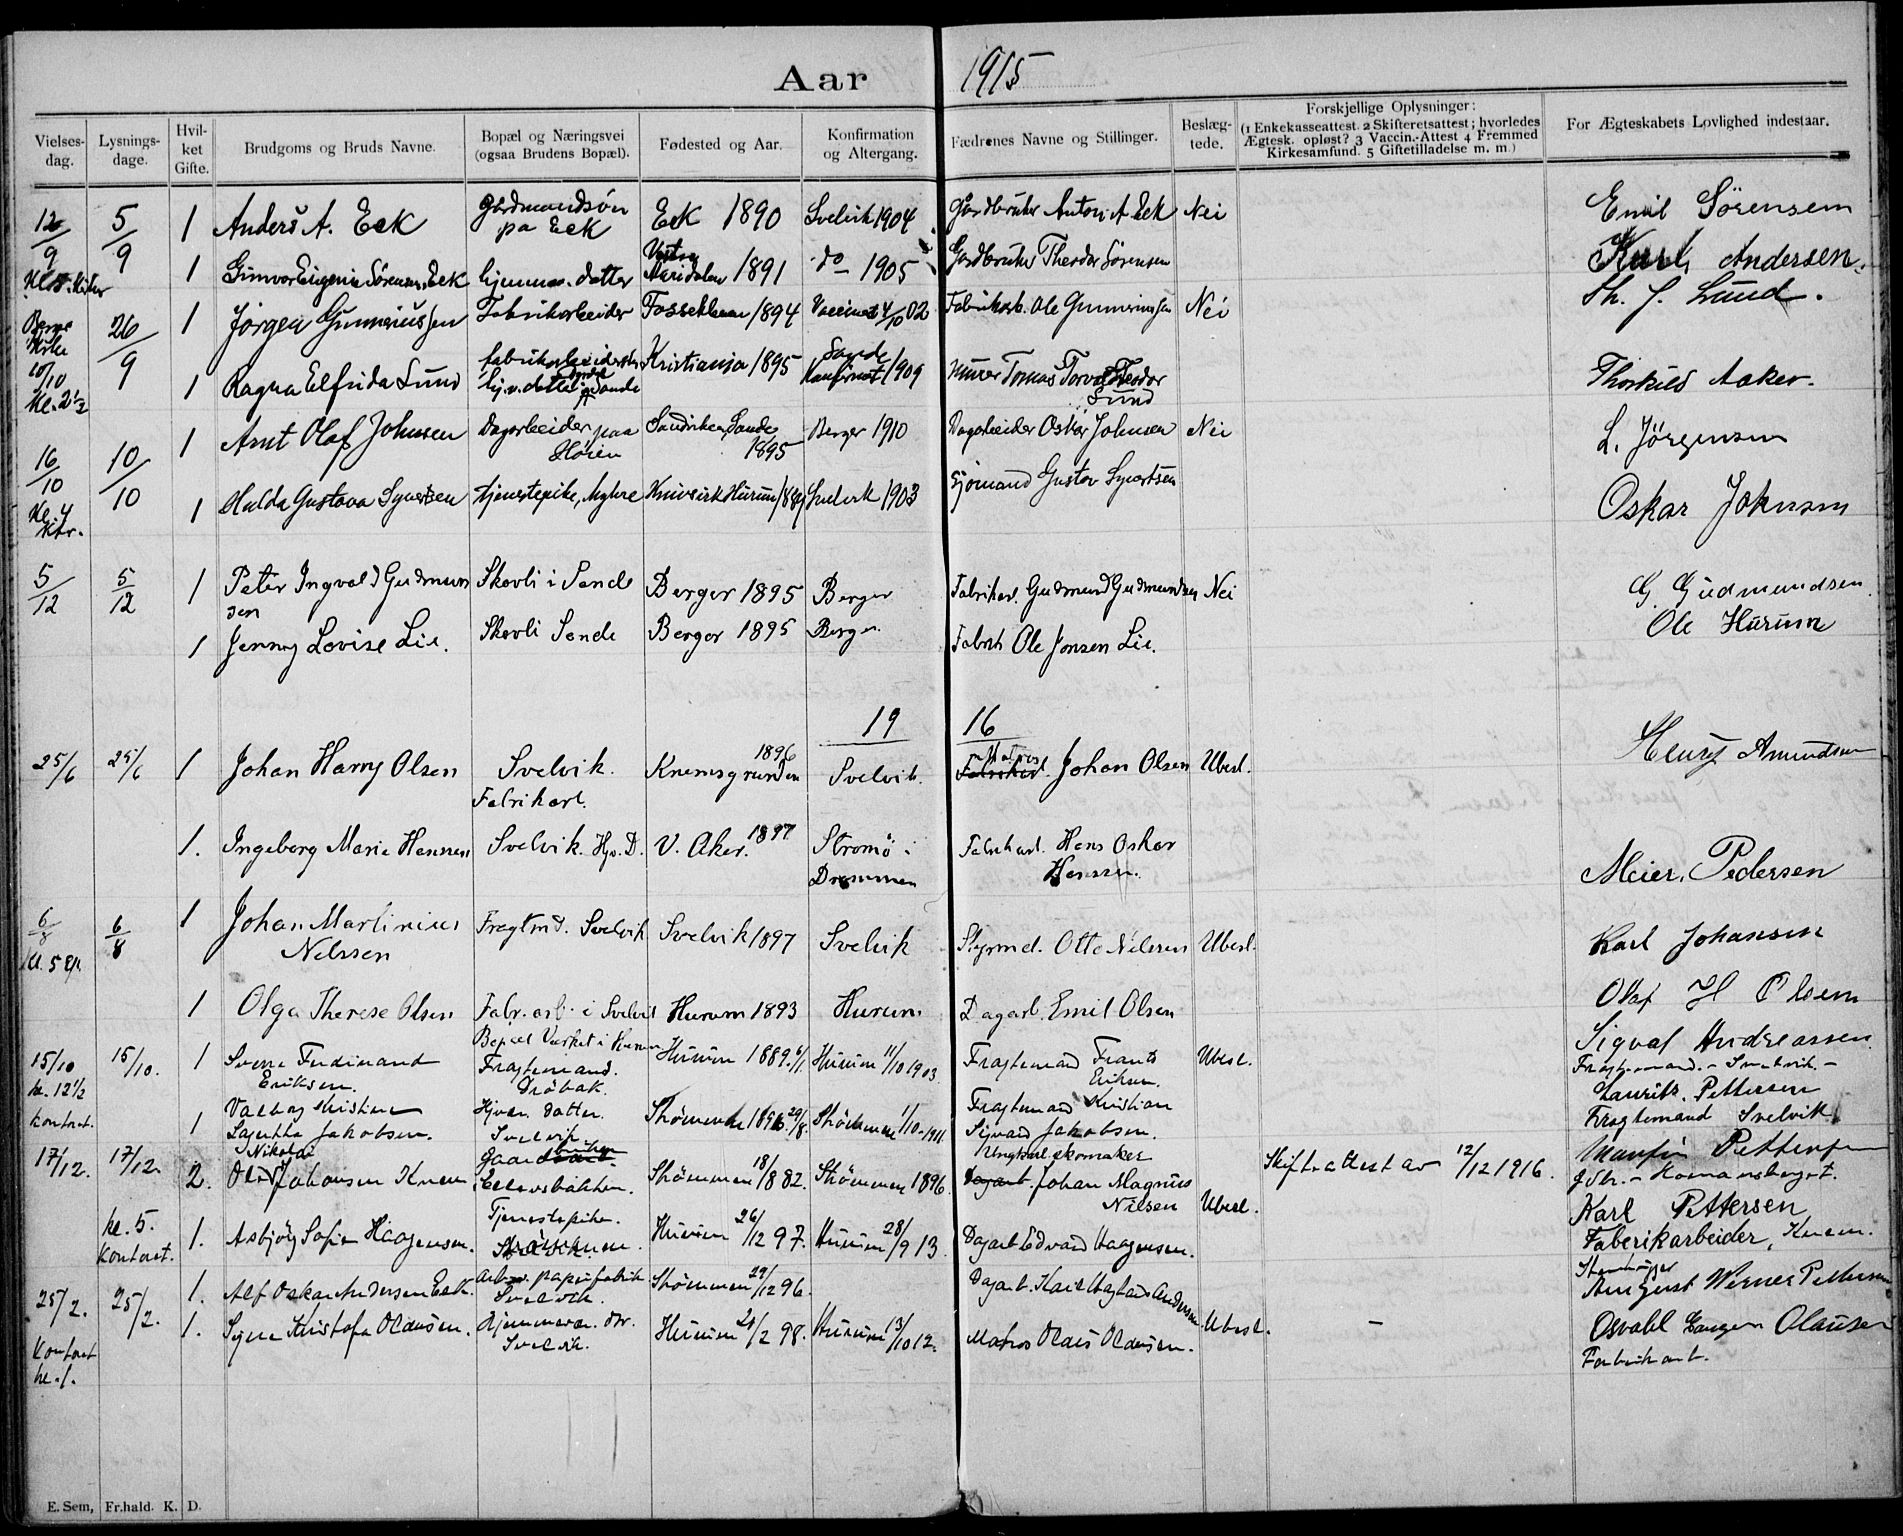 Aar 1915
Vielses-dag. Lysnings-dage. Hvil-ket Gifte. Brudgoms og Bruds Navne. Bopæl og Næringsvei (ogsaa Brudens Bopæl). Fødested og Aar. Konfirmation og Altergang. Fædrenes Navne og Stillinger. Beslæg-tede. Forskjellige Oplysninger: (1 Enkekasseattest. 2 Skifteretsattest; hvorledes Ægtesk. opløst? 3 Vaccin.-Attest 4 Fremmed Kirkesamfund. 5 Giftetilladelse m. m.) For Ægteskabets Lovlighed indestaar.
12/9 5/9 1 Anders A. Eek Gårdmandsøn på Eek Eek 1890 Svelvik 1904 Gårdbruker Anton A Eek Nei Emil Sørensen
1 Gunvor Eugenie Sørensen, Eek hjemmev. datter 1891 do 1905 Gårdbruker Theodor Sørensen Karl Andersen.
Berger Kirke 10/10 kl. 2½ 26/9 1 Jørgen Gunneriussen Fabrikarbeider Fossekleven 1894 4/10 02 Fabrikarb. Ole Gunneriussen Nei Th. J. Lund.
1 Ragna Elfrida Lund Kristiania 1895 Sande Konfirmert 1909 murer Tomas Torvald Teodor Lund Thorkild Aaker.
16/10 kl. 4 10/10 1 Arnt Olaf Johnsen Dagarbeider paa Høien Sandviken, Sande 1895 Berger 1910 Dagarbeider Oskar Johnsen Nei L. Jørgensen
1 Hulda Gustava Syvertsen tjenestepike, Hurum 1889 Svelvik 1903 Sjømand Gustav Syvertsen Oskar Johnsen
5/12 5/12 1 Peter Ingvald Gudmundsen Skovli i Sande Berger 1895 Berger Fabrikar. Gudmund Gudmundsen Nei G Gudmundsen
1 Jenny Lovise Lie. Skovli Sande Berger 1895 Berger. Fabrik Ole Jonsen Lie. Ole Hurum
19 16
25/6 25/6 1 Johan Harry Olsen Svelvik. Fabrikarb. Knemsgrunden 1896 Svelvik. Matros Johan Olsen Ubesl. Henry Amundsen
1. Ingeborg Marie Hansen Svelvik. Hjv. D. V. Aker. 1897 Strømsø i Drammen Fabrikarb. Hans Oskar Hansen. Meier, Pedersen
6/8 kl. 5 6/8 1 Johan Martinius Nilssen Fragtmd. Svelvik Svelvik 1897 Svelvik Styrmd. Otto Nilssen Ubesl. Karl Johansen
1 Olga Therese Olsen Fabr. arb. i Svelvik Hurum 1893 Hurum Dagarb. Emil Olsen Olaf H Olsen
15/10 kl. 12½ kontoret. 15/10. 1 Sverre Ferdinand Eriksen. Fragtemand. Drøbak. Hurum 1889 6/1 Hurum 11/10 1903. Fragtemand Frants Eriksen. Ubesl. Sigval Andreassen Fragtemand. - Svelvik. -
1 Valborg Kristine Jakobsen. Hjvær. datter. Svelvik. Strømmen 1896 29/8. Strømmen 1/10-1911. Fragtemand Kristian Sigvard Jakobsen. Laurits. Pettersen Fragtemand Svelvik.
17/12. 17/12. 2. Olaf Nikolai Johansen Knem Strømmen 18/8 82. Strømmen 1896. skomaker Johan Magnus Nilsen Ubesl. Skifteattest av 12/12 1916.
kl. 5. Kontoret. 1. Asbjørg Sofie Haagensen. Tjenestepike. Hurum 26/12 97. Hurum 28/9 13. Dagarb Edvard Haagensen. Karl Pettersen Faberikarbeider, Knem.
25/2. Kontoret kl. 1. 25/2. 1. Alf Oskar Andersen Eek. papirfabrik Svelvik. Strømmen 29/12 96. Dagarb. Karl Andersen Ubesl. - August Werner Pettersen
1. Signe Kristofa Olausen. Hjemmevær. dtr. Svelvik. Hurum 21/2 98. Hurum 13/10 12. Matros Olaus Olausen. Osvald Eugen Olausen Fabrikarb.
E. Sem, Fr.hald. K. D.